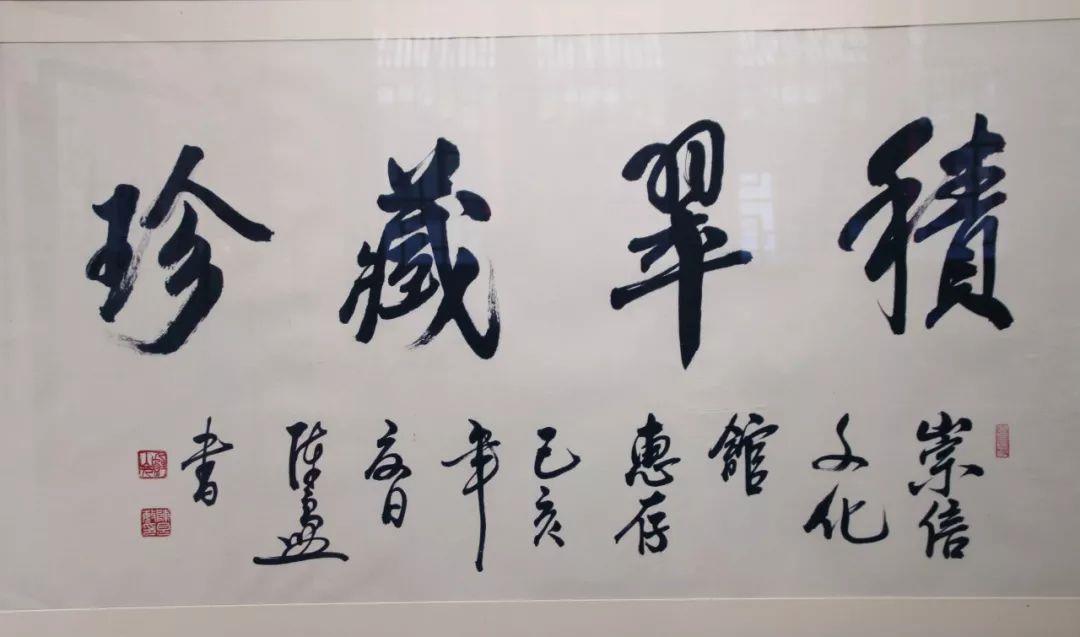 積翠藏珍
崇信
文化
館
惠存
己亥
年
夏日
陳
書